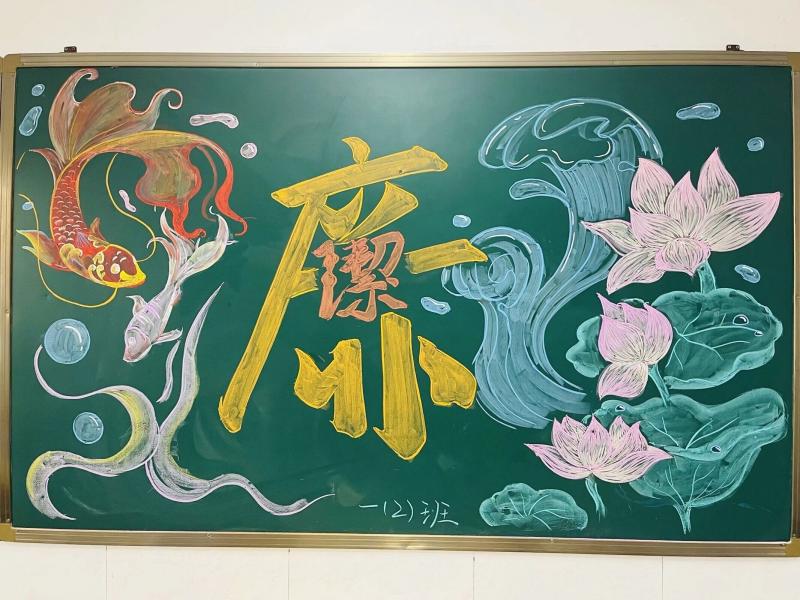 廉
潔
一(2)班